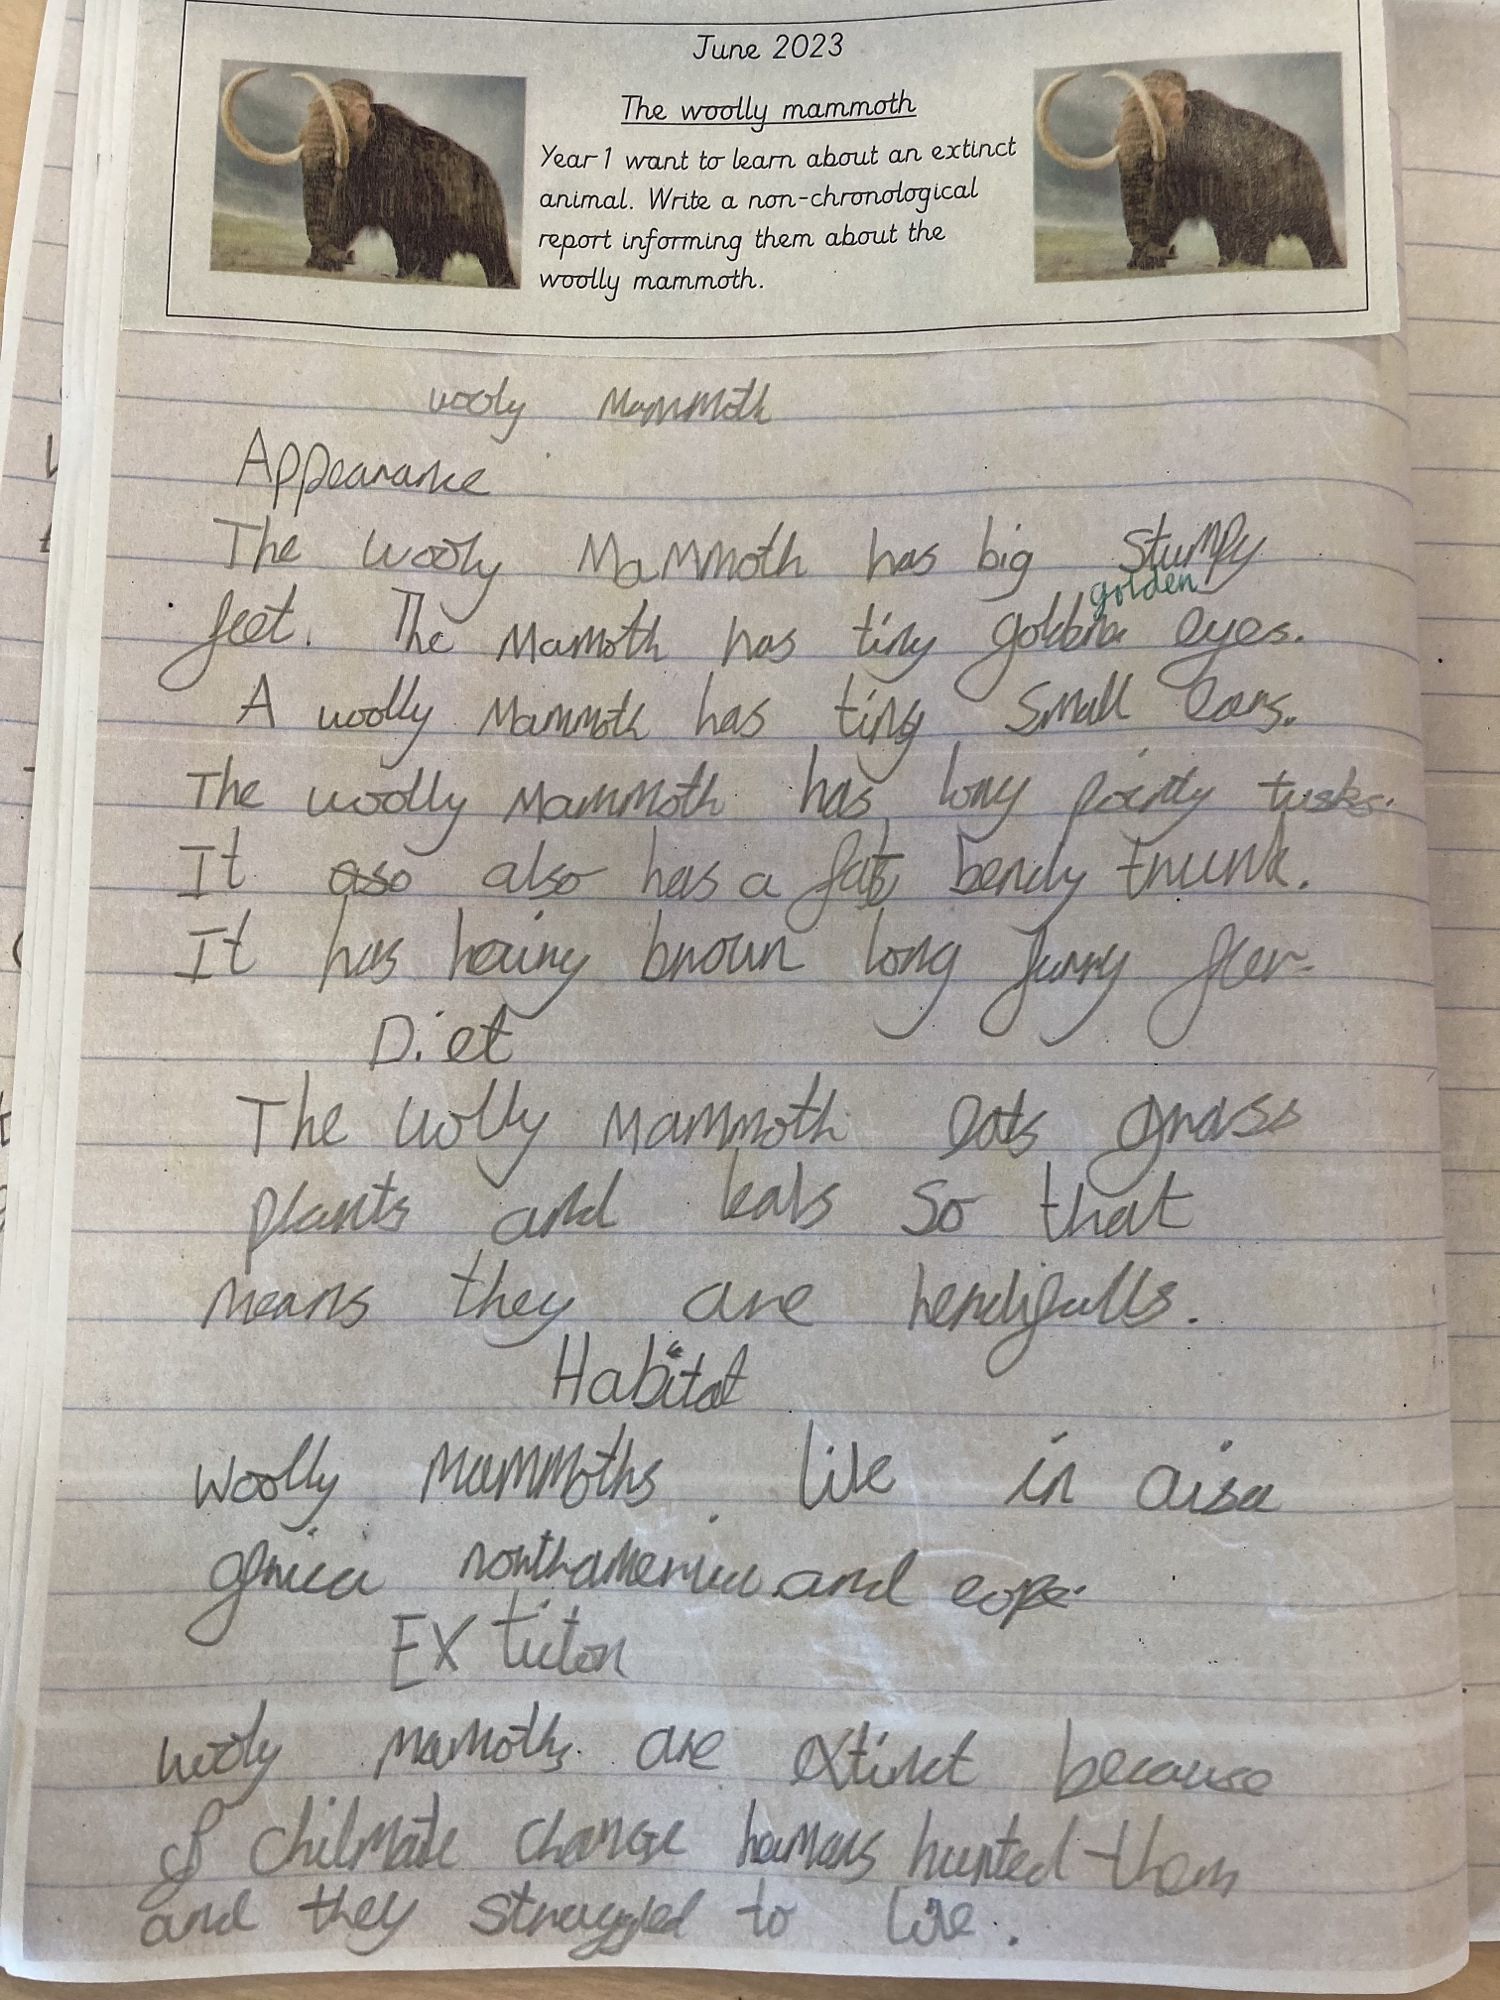 June 2023
The woolly mammoth
Year 1 want to learn about an extinct
animal. Write a non-chronological
report informing them about the
woolly mammoth.
wooly Mammoth
Appearance
The wooly Mammoth has big stumpy
golden
feet. The Mamoth has tiny eyes.
A woolly Mammoth has tiny small ears.
The woolly Mammoth has long pointy tusks.
It aso also has a fat, bendy trunk.
It has hairy brown long furry fler.
Diet
The wolly Mammoth eats grass
plants and leabs so that
means they are herdifulls.
Habitat
woolly Mammoths live in aisa
africa northamerica and eope.
EXticton
wooly Mamoths are extinct because
of chilmate change humans hunted them
and they struggled to live.